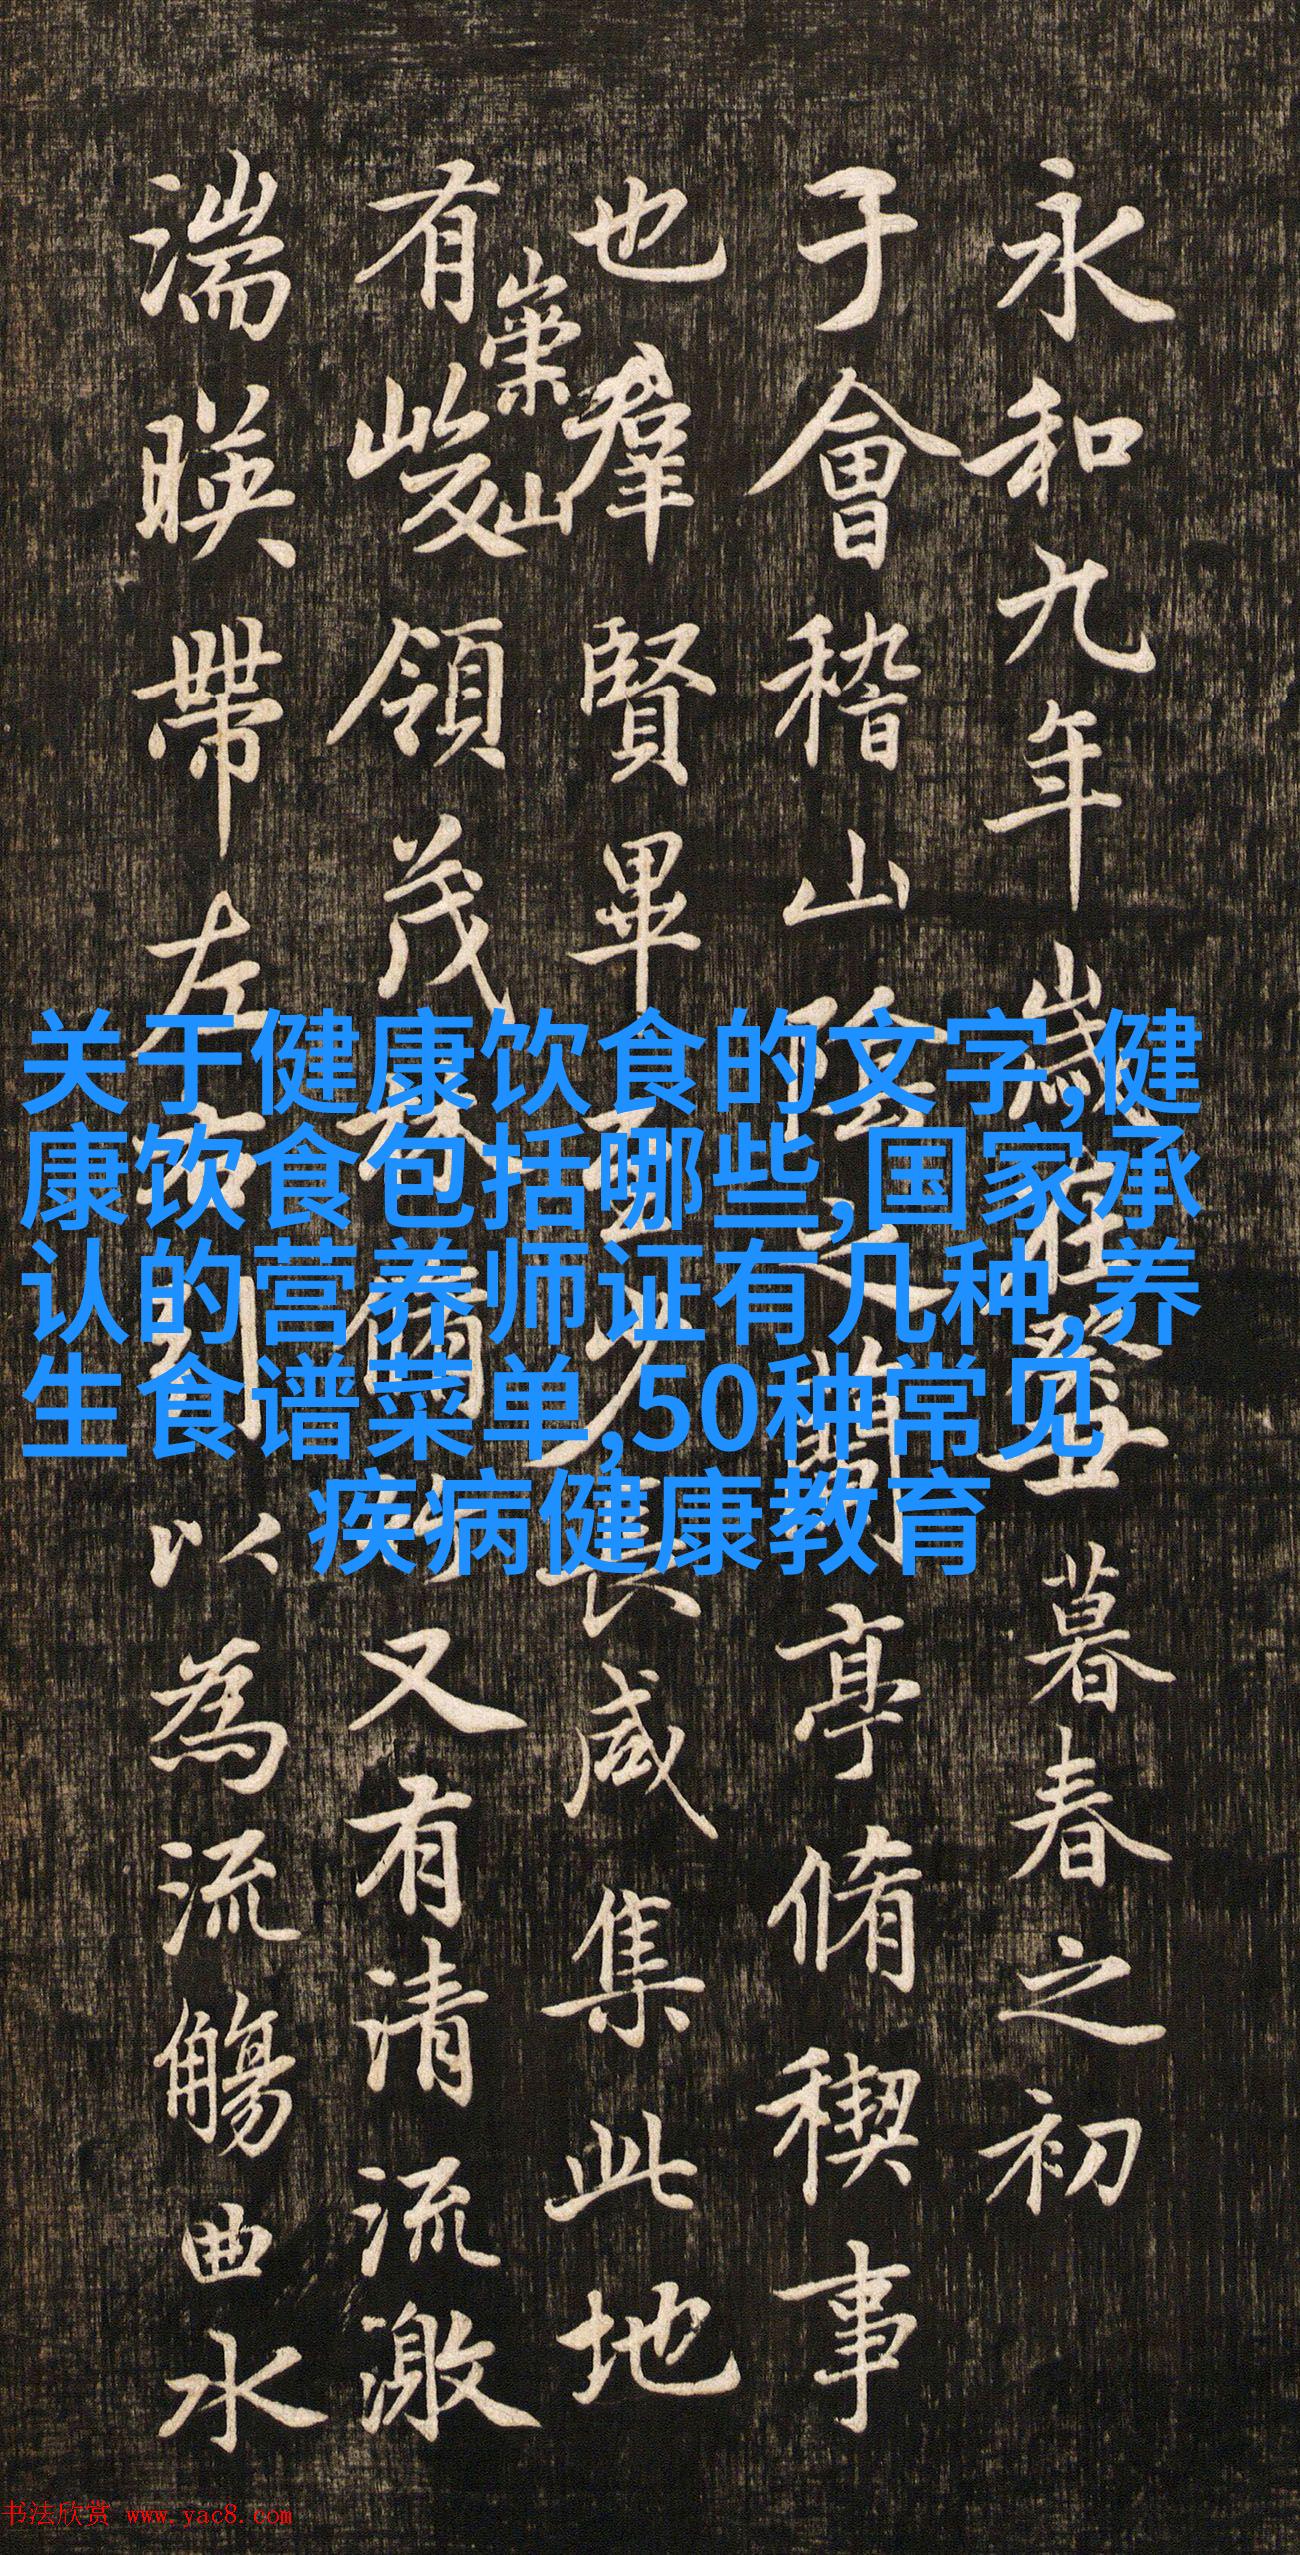 永和九年歲在癸丑暮春之初
于會稽山陰之蘭亭脩稧事
也羣賢畢至少長咸集此地
有崇山峻領茂林脩竹又有清流激
湍暎帶左右引以為流觴曲水
关于健康饮食的文字,健
康饮食包括哪些,国家承
认的营养师证有几种,养
生食谱菜单,50种常见
疾病健康教育
书法欣赏 www.yac8.com